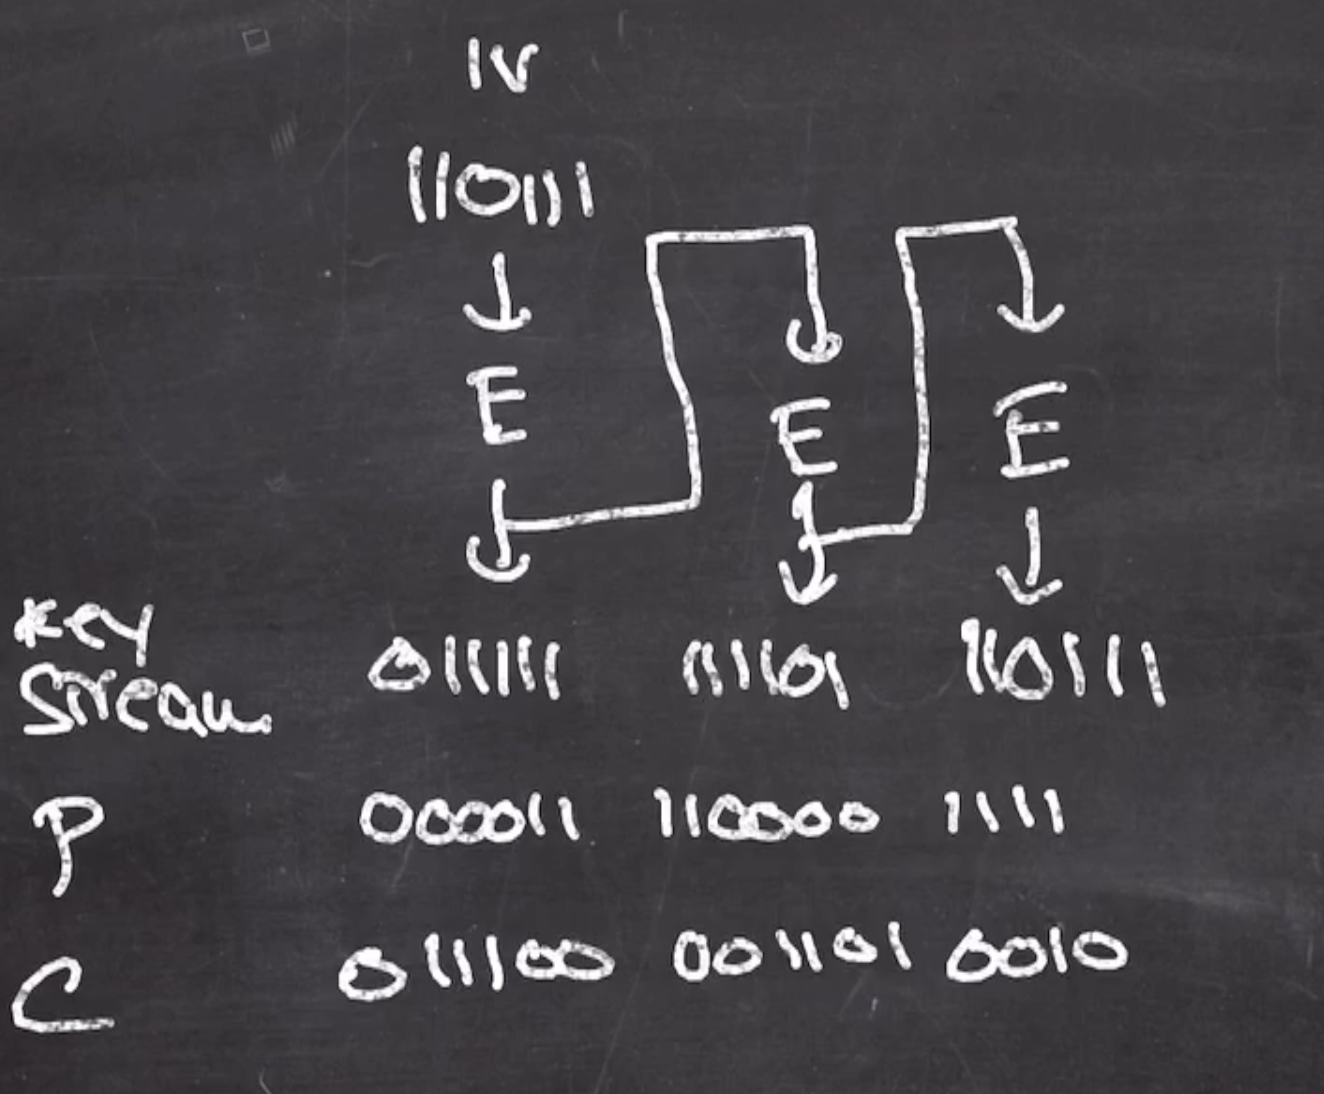 IV
110111
E E E
key
stream 011111 111101 110111
P 000011 110000 1111
C 011100 001101 0010